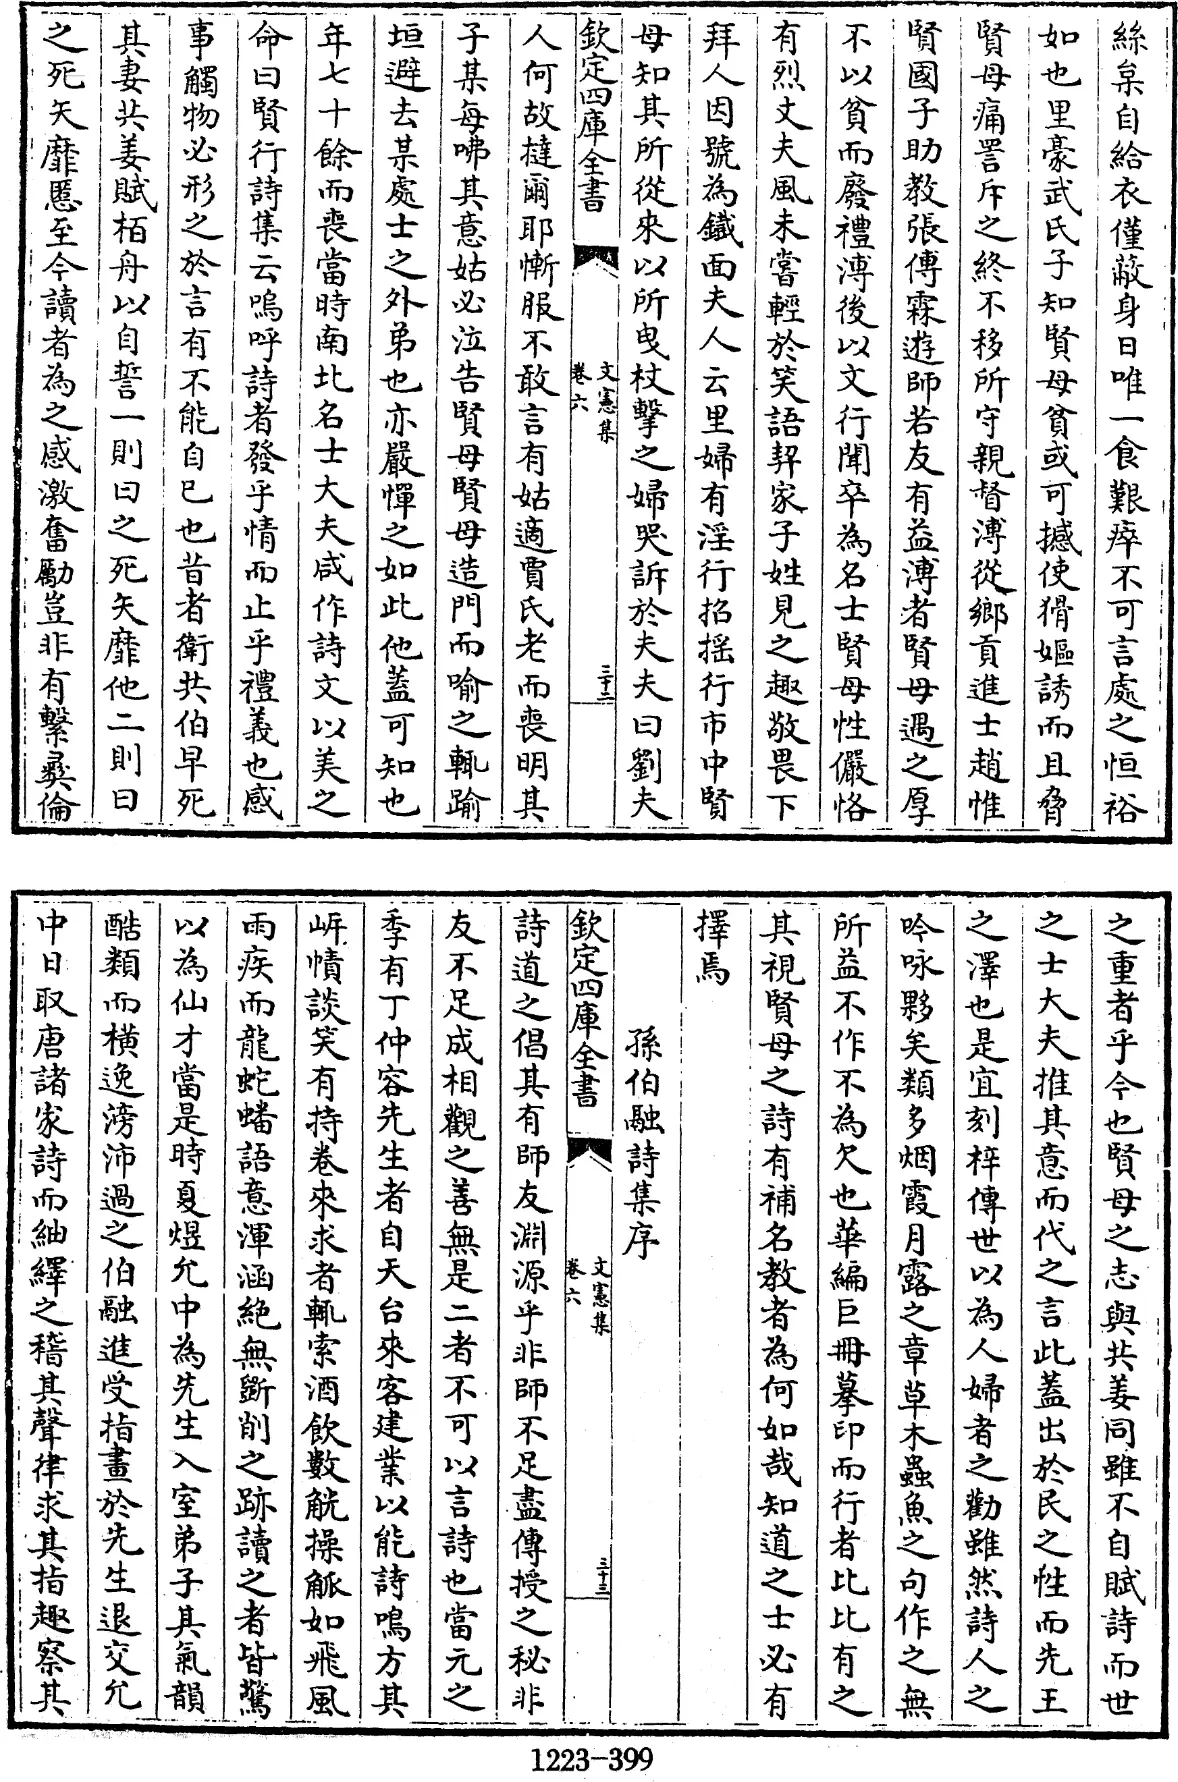 絲枲自給衣僅蔽身日唯一食艱瘁不可言處之恒裕
如也里豪武氏子知賢母貧或可撼使猾嫗誘而且脅
賢母痛詈斥之終不移所守親督溥從鄉貢進士趙惟
賢國子助教張傅霖遊師若友有益溥者賢母遇之厚
不以貧而廢禮溥後以文行聞卒為名士賢母性儼恪
有烈丈夫風未嘗輕於笑語契家子姓見之趣敬畏下
拜人因號為鐵面夫人云里婦有淫行招搖行市中賢
母知其所從來以所曳杖擊之婦哭訴於夫夫曰劉夫
欽定四庫全書
文憲集
卷六
三十二
人何故撻爾耶慚服不敢言有姑適賈氏老而喪明其
子某每咈其意姑必泣告賢母賢母造門而喻之輒踰
垣避去某處士之外弟也亦嚴憚之如此他蓋可知也
年七十餘而喪當時南北名士大夫咸作詩文以美之
命曰賢行詩集云嗚呼詩者發乎情而止乎禮義也感
事觸物必形之於言有不能自已也昔者衛共伯早死
其妻共姜賦栢舟以自誓一則曰之死矢靡他二則曰
之死矢靡慝至今讀者為之感激奮勵豈非有繫彝倫
之重者乎今也賢母之志與共姜同雖不自賦詩而世
之士大夫推其意而代之言此蓋出於民之性而先王
之澤也是宜刻梓傳世以為人婦者之勸雖然詩人之
吟咏夥矣類多烟霞月露之章草木蟲魚之句作之無
所益不作不為欠也華編巨冊摹印而行者比比有之
其視賢母之詩有補名教者為何如哉知道之士必有
擇焉
孫伯融詩集序
欽定四庫全書
文憲集
卷六
三十三
詩道之倡其有師友淵源乎非師不足盡傳授之秘非
友不足成相觀之善無是二者不可以言詩也當元之
季有丁仲容先生者自天台來客建業以能詩鳴方其
岸幘談笑有持卷來求者輒索酒飲數觥操觚如飛風
雨疾而龍蛇蟠語意渾涵絕無斲削之跡讀之者皆驚
以為仙才當是時夏煜允中為先生入室弟子其氣韻
酷類而橫逸滂沛過之伯融進受指畫於先生退交允
中日取唐諸家詩而紬繹之稽其聲律求其指趣察其
1223-399